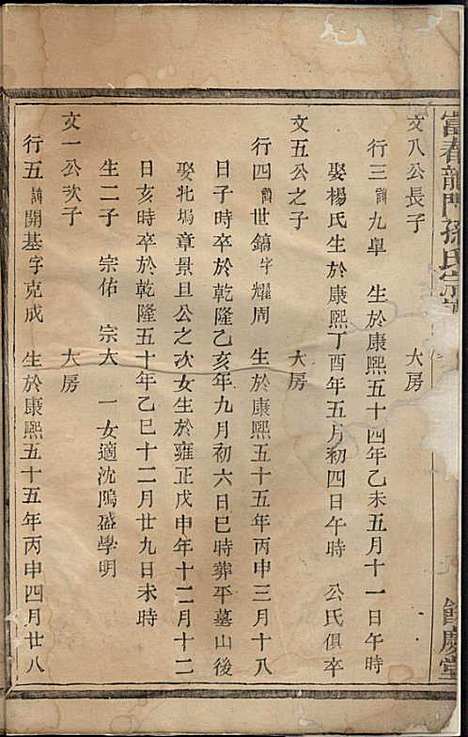 富春龍門孫氏宗譜
餘慶堂
文八公長子　大房
行三諱九皐　生於康熙五十四年乙未五月十一日午時
娶楊氏生於康熙丁酉年五月初四日午時　公氏俱卒
文五公之子　大房
行四諱世鎬字耀周　生於康熙五十五年丙申三月十八
日子時卒於乾隆乙亥年九月初六日巳時葬平墓山後
娶北塢章景旦公之次女生於雍正戊申年十二月十二
日亥時卒於乾隆五十年乙巳十二月廿九日未時
生二子　宗佑　宗大　一女適沈鴫盛學明
文一公次子　大房
行五諱開基字克成　生於康熙五十五年丙申四月廿八